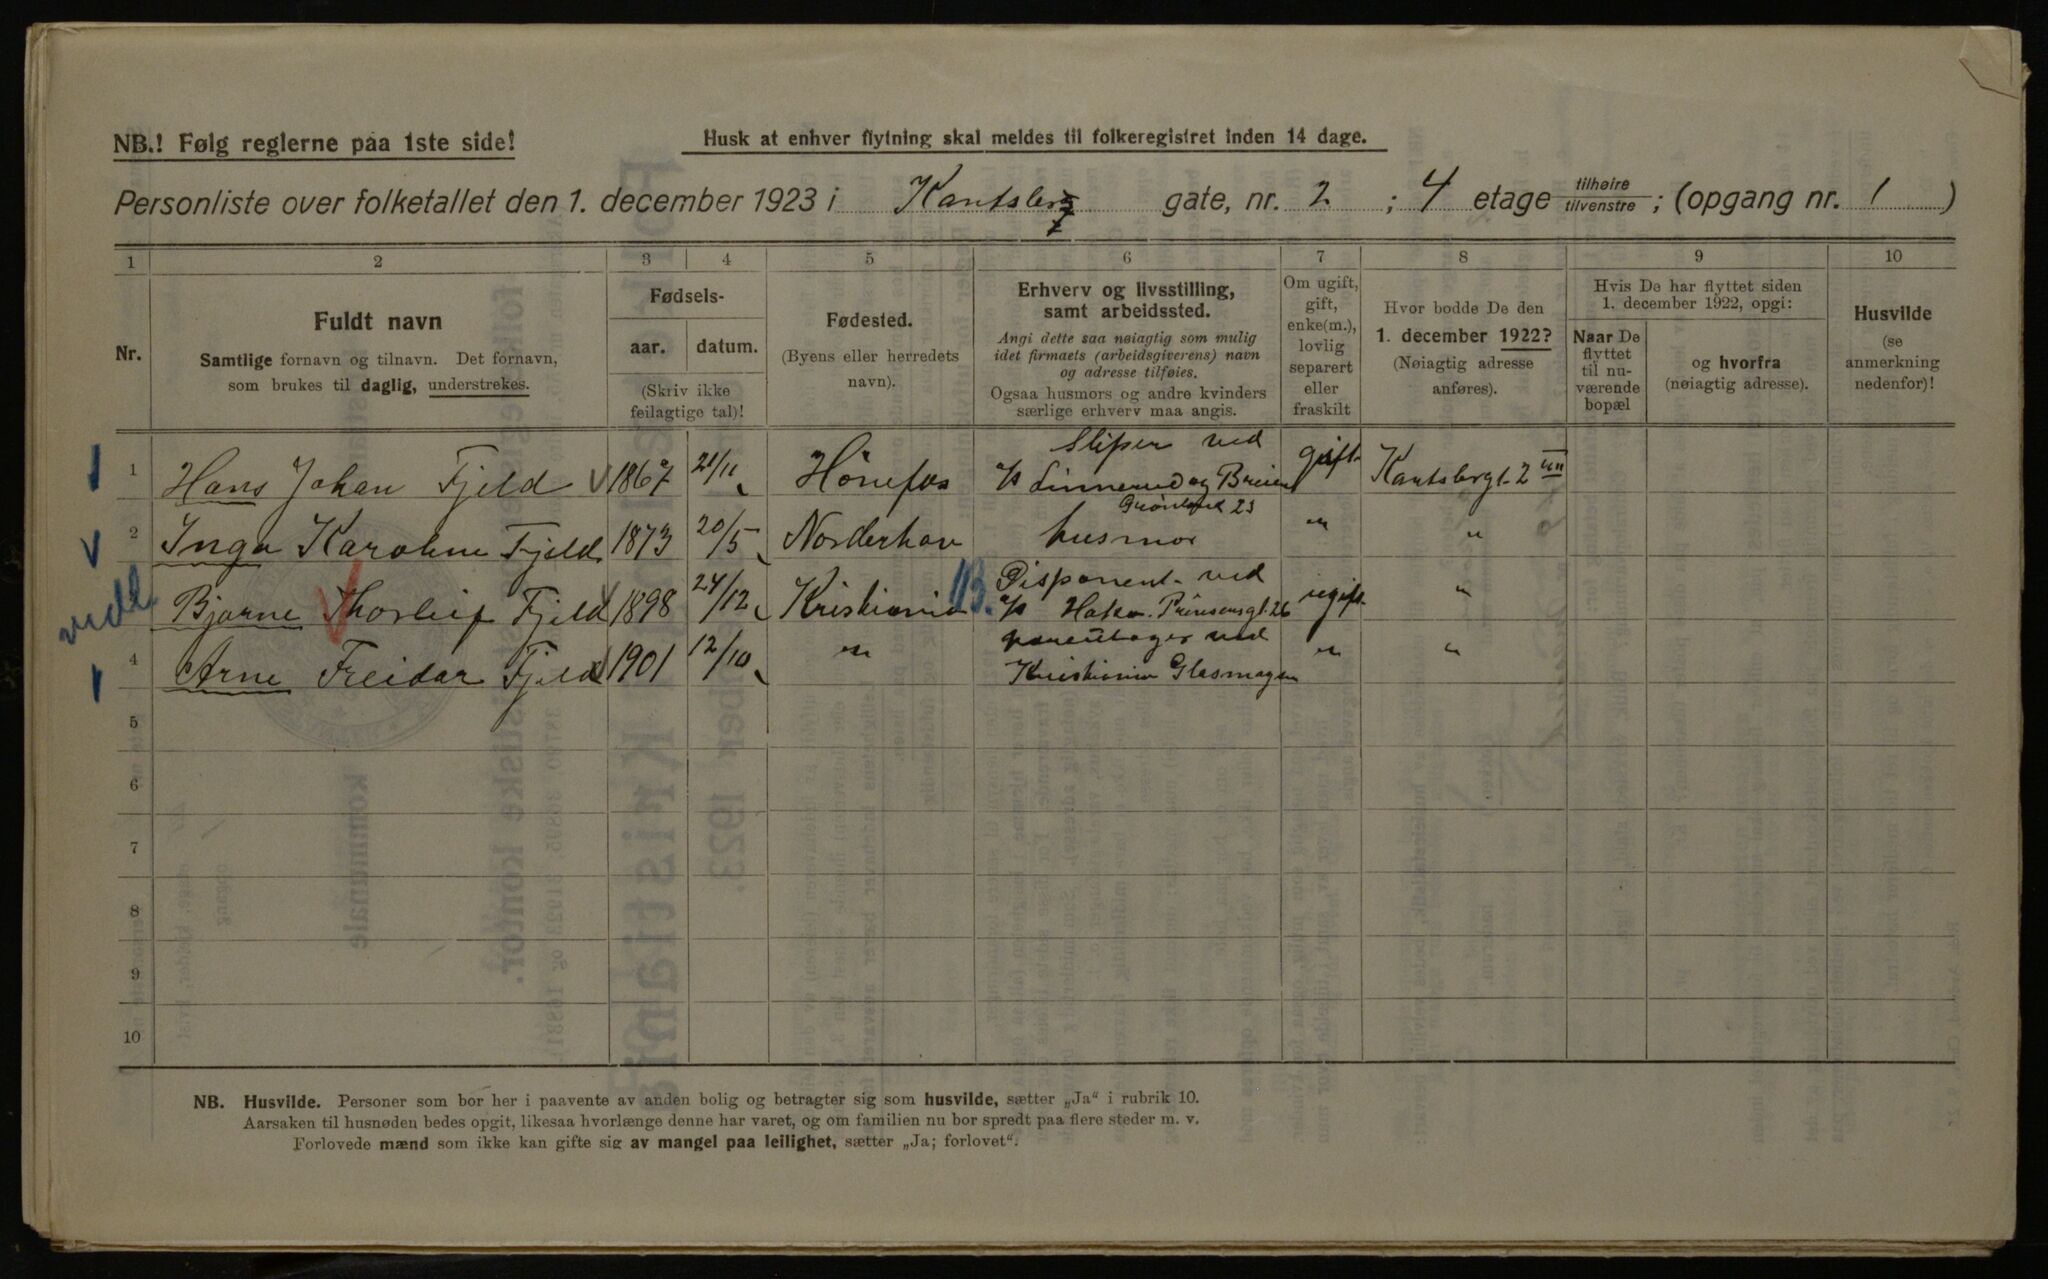 NB.! Følg reglerne paa 1ste side!
Husk at enhver flytning skal meldes til folkeregistret inden 14 dage.
Personliste over folketallet den 1. december 1923 i Kantsberg gate, nr. 2 ; 4 etage tilhøire tilvenstre ; (opgang nr. 1 )
1 2 3 4 5 6 7 8 9 10
Nr.
Fuldt navn
Samtlige fornavn og tilnavn. Det fornavn,
som brukes til daglig, understrekes.
Fødsels-
aar. datum.
(Skriv ikke
feilagtige tal)!
Fødested.
(Byens eller herredets
navn).
Erhverv og livsstilling,
samt arbeidssted.
Angi dette saa nøiagtig som mulig
idet firmaets (arbeidsgiverens) navn
og adresse tilføies.
Ogsaa husmors og andre kvinders
særlige erhverv maa angis.
Om ugift,
gift,
enke(m.),
lovlig
separert
eller
fraskilt
Hvor bodde De den
1. december 1922?
(Nøiagtig adresse
anføres).
Hvis De har flyttet siden
1. december 1922, opgi:
Naar De
flyttet
til nu-
værende
bopæl
og hvorfra
(nøiagtig adresse).
Husvilde
(se
anmerkning
nedenfor)!
1 Hans Johan Fjeld 1867 21/11 Hönefos Sliper ved gift Kantsbergt. 2
A/S Linnerud og Breien
Grønland 23
2 Inga Karoline Fjeld 1873 20/5 Norderhov husmor " "
3 Bjarne Thorleif Fjeld 1898 24/12 Kristiania Disponent ved ugift "
A/S Prinsensgt. 26
4 Arne Freidar Fjeld 1901 12/10 " ved " "
Kristiania Glasmagasin
5
6
7
8
9
10
NB. Husvilde. Personer som bor her i paavente av anden bolig og betragter sig som husvilde, sætter „Ja“ i rubrik 10.
Aarsaken til husnøden bedes opgit, likesaa hvorlænge denne har varet, og om familien nu bor spredt paa flere steder m. v.
Forlovede mænd som ikke kan gifte sig av mangel paa leilighet, sætter „Ja; forlovet“.